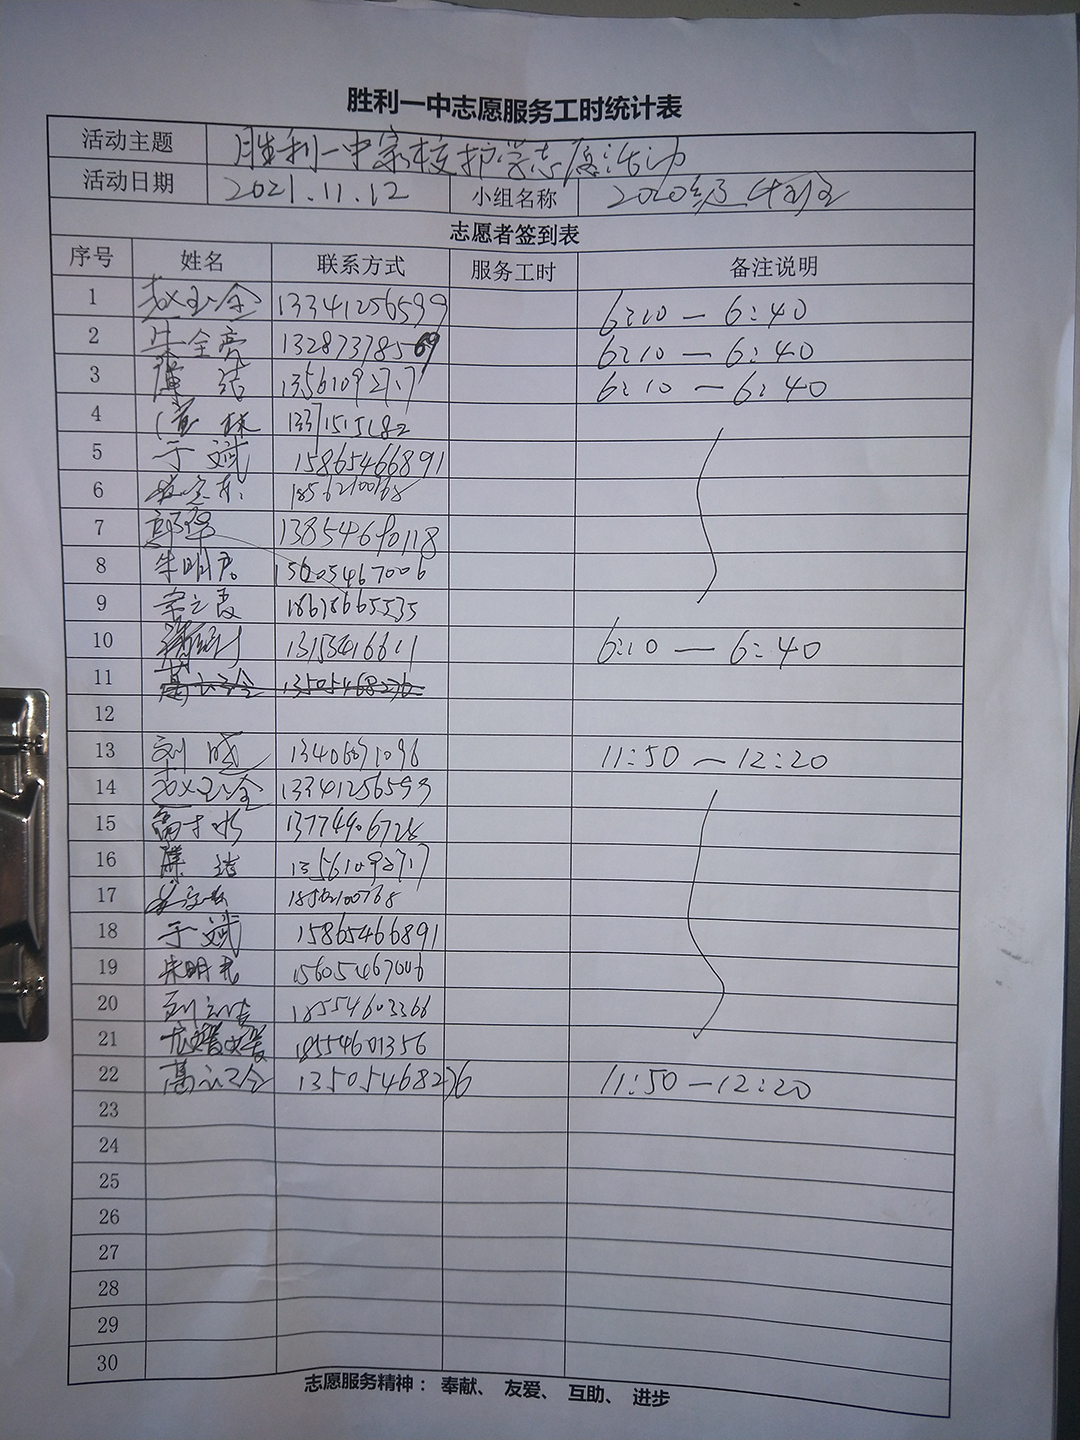 胜利一中志愿服务工时统计表
活动主题 胜利一中家校护学志愿活动
活动日期 2021.11.12 小组名称 2020级
志愿者签到表
序号 姓名 联系方式 服务工时 备注说明
1 赵玉金 13341256599 6:10 — 6:40
2 牛全亮 13287378569 6:10 — 6:40
3 洁 13561092717 6:10 — 6:40
4 林 13371515182
5 于斌 15865466891
6 18562100768
7 郭军 13854690118
8 朱明君 15605467006
9 宗立霞 18678665535
10 6:10 — 6:40
11 13505468276
12
13 刘晓 11:50 — 12:20
14 赵玉金 13341256599
15 高于水
16 洁 13561092717
17 18562100768
18 于斌 15865466891
19 朱明君 15605467006
20 18554603366
21 18554601356
22 13505468276 11:50 — 12:20
23
24
25
26
27
28
29
30
志愿服务精神： 奉献、 友爱、 互助、 进步